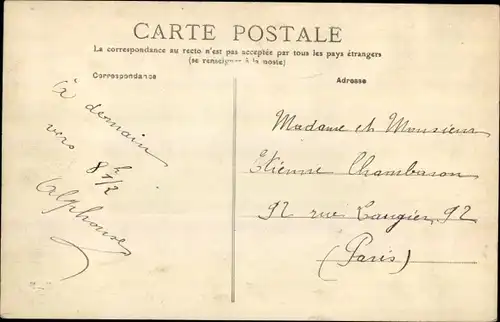 CARTE POSTALE
La correspondance au recto n'est pas acceptée par tous les pays étrangers
(se renseigner à la poste)
Correspondance
Adresse
à demain
vers 8 h 1/2
Alphonse
Madame et Monsieur
Etienne Chambason
92 rue Laugier, 92
(Paris)